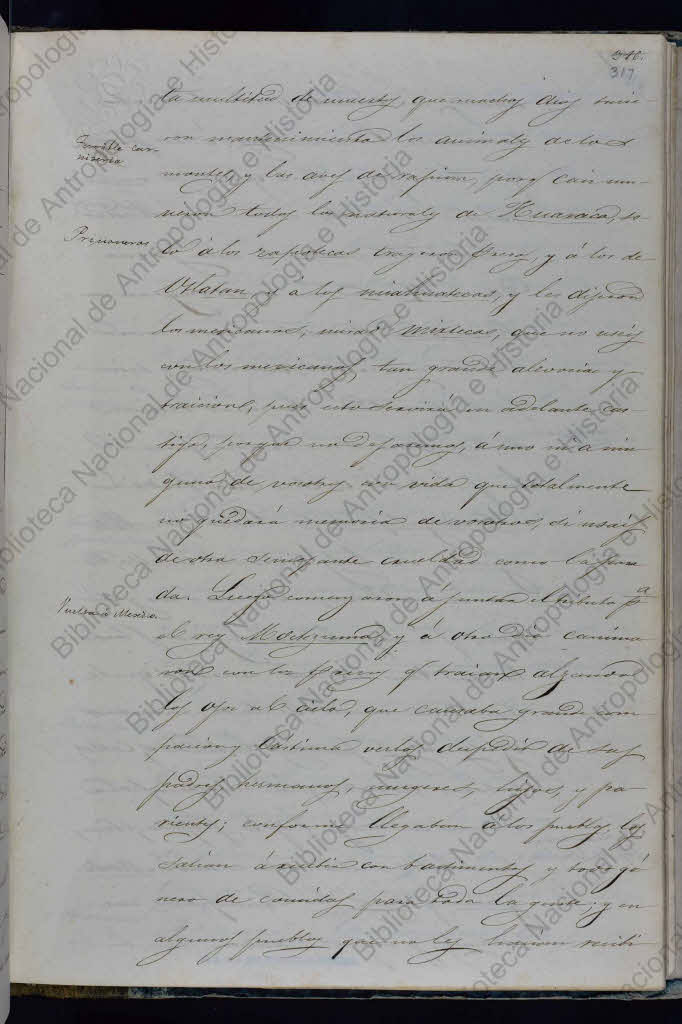 346.
317
ta multitud de muertos, que muchos dias tuvie-
ron mantenimiento los animales de los
Terrible car-
niceria
montes, y las aves de rapiña, pues casi mu-
rieron todos los naturales de Huaxaca, so-
Prisioneros
lo á los zapotecas trageron presos, y á los de
Otlatan, y á los miahuatecas, y les digeron
los mexicanos, mirad Miztecas, que no useis
con los mexicanos tan grande alevosia y
traicion, pues esto servirá en adelante cas-
tigo, porque no dejaremos, á uno ni a nin-
guno de vosotros con vida que totalmente
no quedará memoria de vosotros, si usais
de otra semejante crueldad como la pasa-
da. Luego comenzaron á juntar el tributo pa
Vuelta á Mexico
el rey Moctezuma, y á otro dia camina-
ron con los presos q traian alzando
los ojos al cielo, que causaba grande com-
pasion y lastima verlos despedir de sus
padres, hermanos, mugeres, hijos, y pa-
rientes; conforme llegaban á los pueblos, los
salian á recibir con bastimentos, y todo gé-
nero de comidas para toda la gente; y en
algunos pueblos que no les hacian recibi-
Biblioteca Nacional de Antropología e Historia